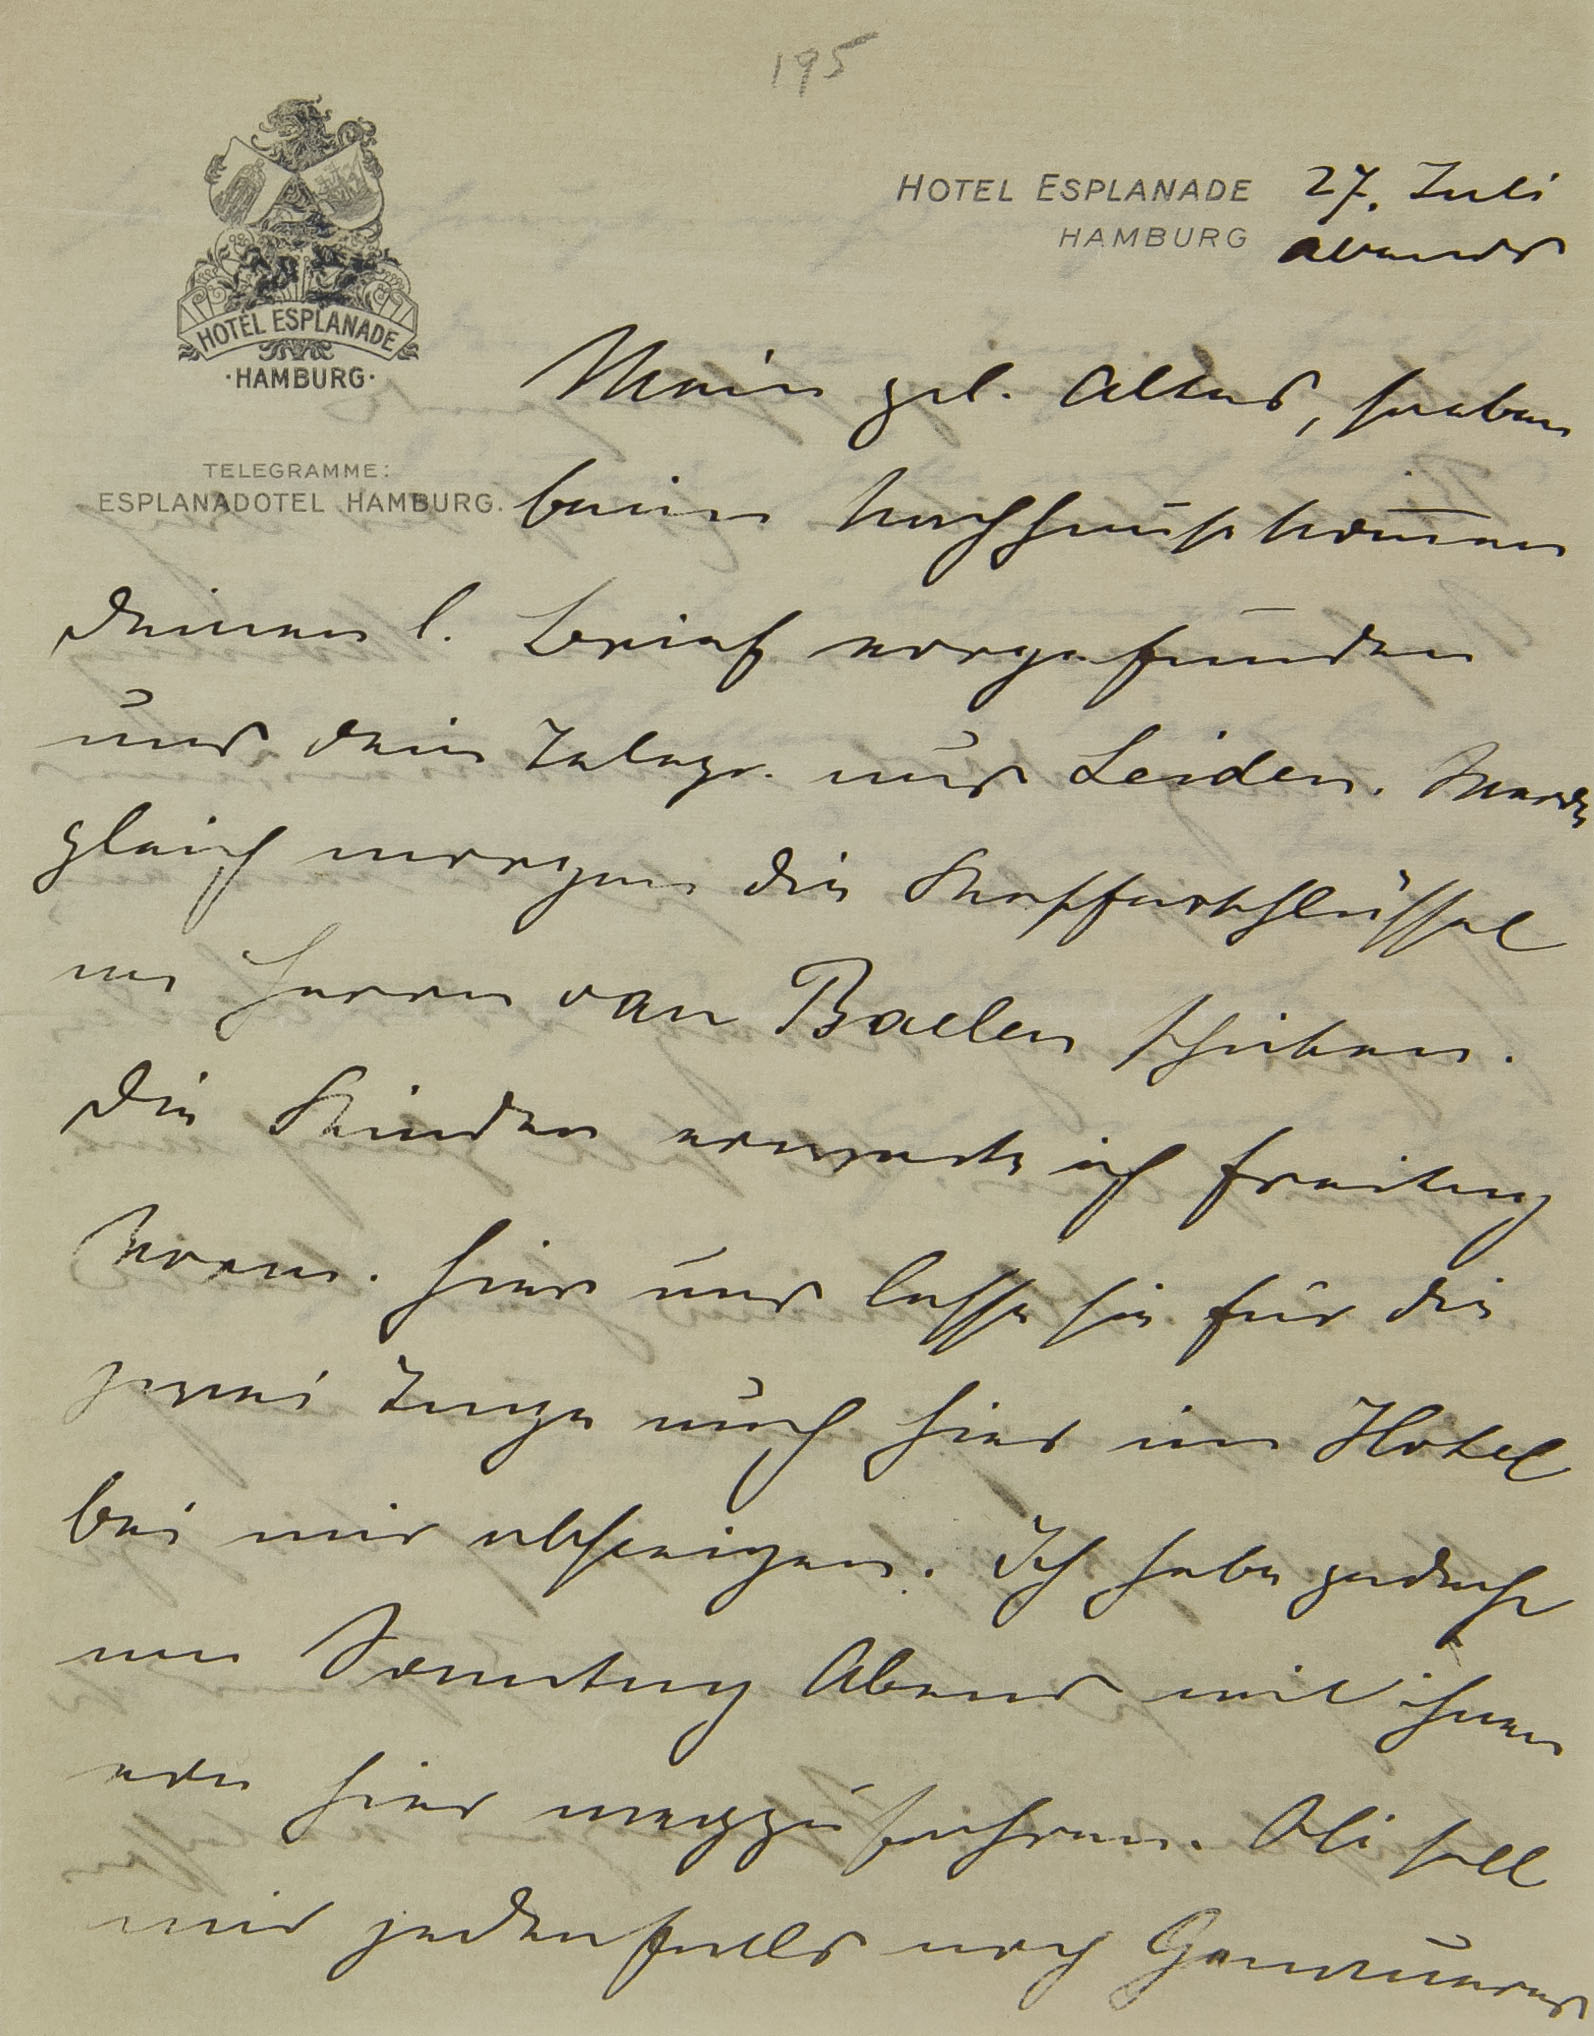 195
HOTEL ESPLANADE
HAMBURG
27. Juli
abends
HOTEL ESPLANADE
·HAMBURG·
TELEGRAMME:
ESPLANADOTEL HAMBURG.
Mein gel. Alter, soeben
beim Nachhausekommen
Deinen l. Brief vorgefunden
und dein Telegr. aus Leiden. Werde
gleich morgen die Kofferschlüssel
an Herrn van Baelen schicken.
Die Kinder erwarte ich Freitag
Vorm. hier und lasse sie für die
zwei Tage auch hier im Hotel
bei mir absteigen. Ich habe gedacht
am Sonntag Abend mit ihnen
von hier wegzufahren. Oli soll
mir jedenfalls noch Genaueres